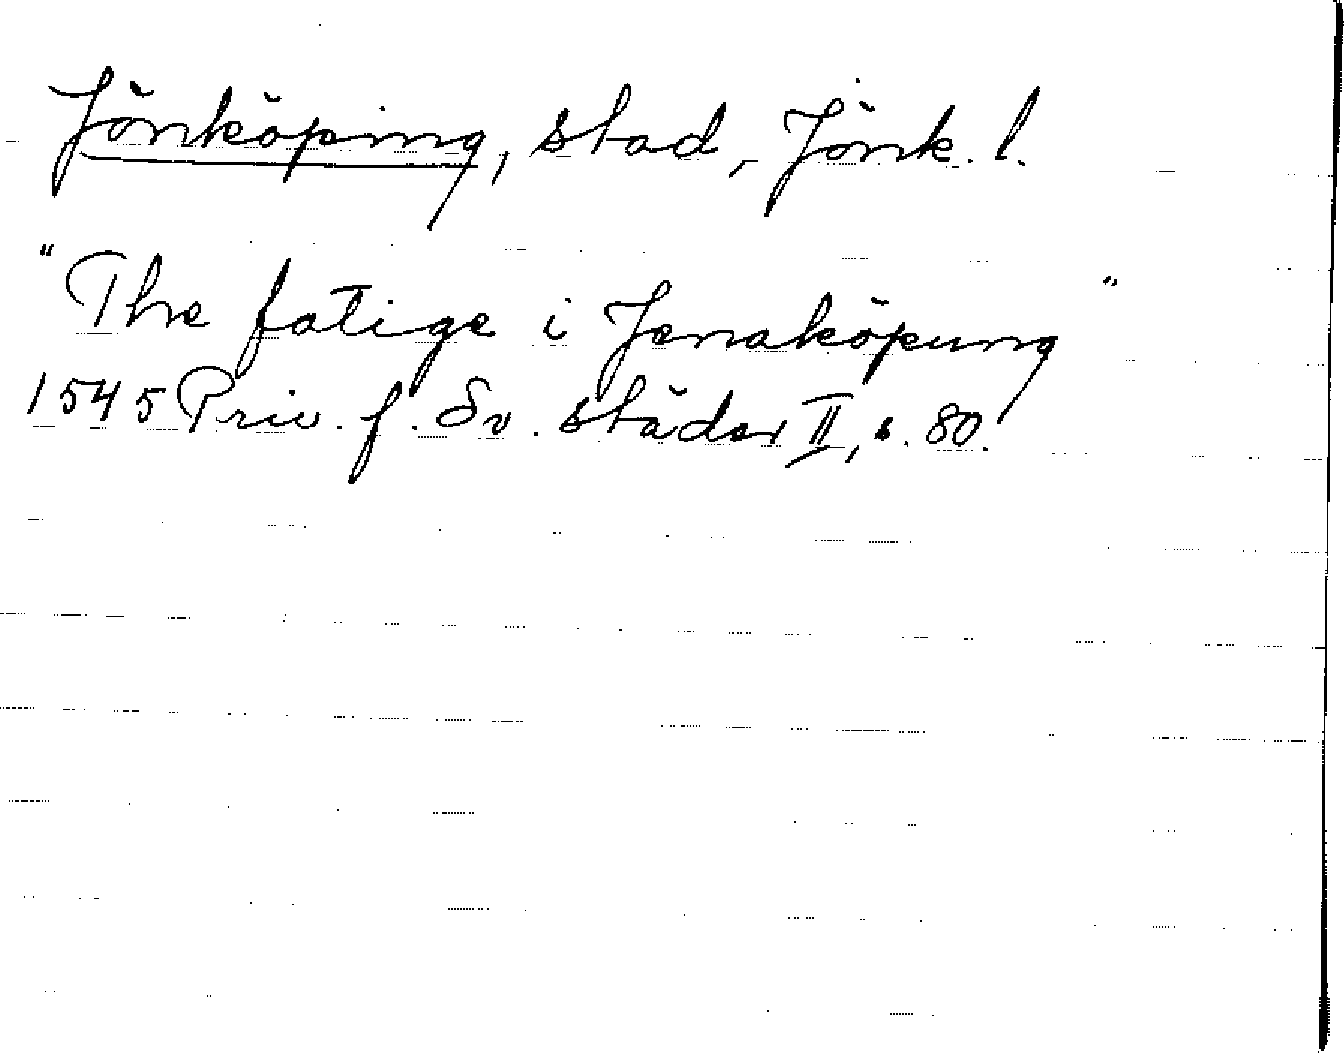 Jönköping, stad, Jönk. l.
"The fatige i Jenaköpung"
1545 Priv. f. Sv. städer II, s. 80.